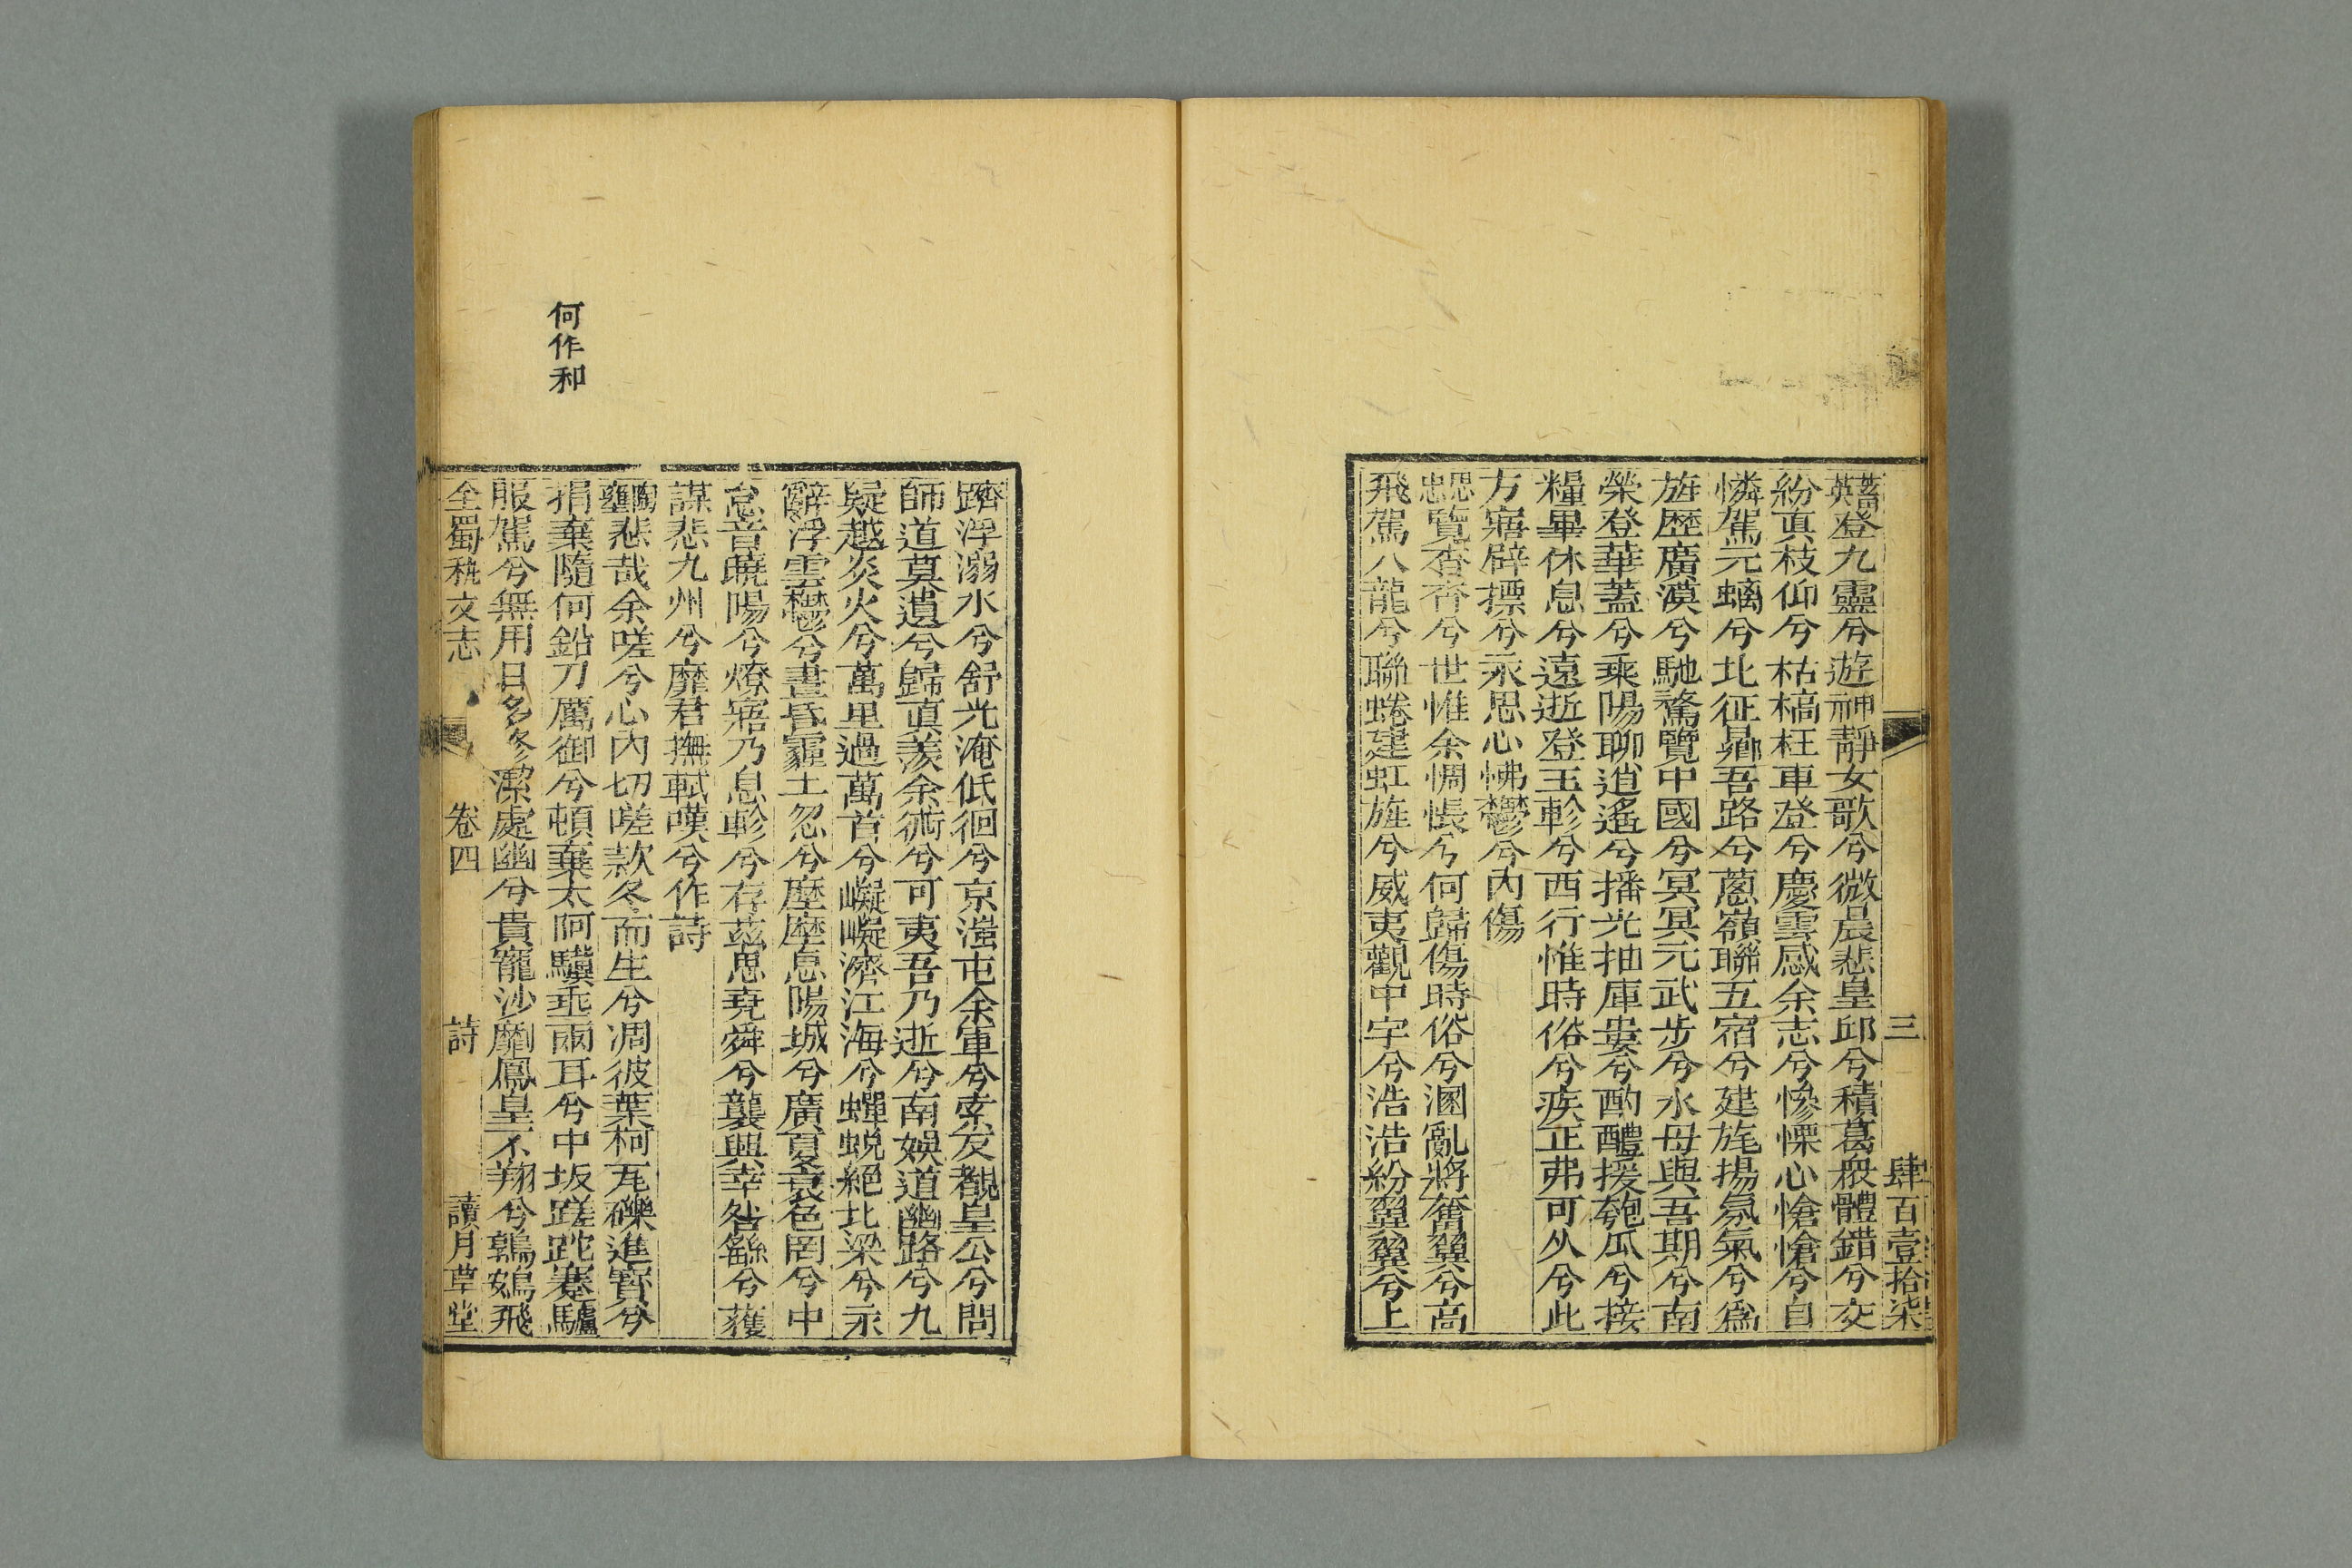 三　肆百壹拾柒
蓄英登九靈兮遊神靜女歌兮微晨悲皇邱兮積葛衆體錯兮交
紛貞枝仰兮枯槁枉車登兮慶雲感余志兮慘慄心愴愴兮自
憐駕元螭兮北征曏吾路兮蔥嶺聯五宿兮建旄揚氛氣兮爲
旌歷廣漠兮馳騖覽中國兮冥冥元武步兮水母與吾期兮南
榮登華蓋兮乘陽聊逍遙兮播光抽庫婁兮酌醴援瓟瓜兮接
糧畢休息兮遠逝登玉軫兮西行惟時俗兮疾正弗可久兮此
方寤辟摽兮永思心怫鬱兮內傷
思忠覽杳杳兮世惟余惆悵兮何歸傷時俗兮溷亂將奮翼兮高
飛駕八龍兮聯蜷建虹旌兮威夷觀中宇兮浩浩紛翼翼兮上
躋浮溺水兮舒光淹低徊兮京沶屯余車兮索友覩皇公兮問
師道莫遺兮歸眞羨余術兮可夷吾乃逝兮南娛道幽路兮九
疑越炎火兮萬里過萬首兮嶷嶷濟江海兮蟬蛻絕北梁兮永
辭浮雲鬱兮晝昏霾土忽兮塺塺息陽城兮廣夏衰色罔兮中
怠音曉陽兮燎寤乃息軫兮存茲思堯舜兮襲興幸咎繇兮獲
謀悲九州兮靡君撫軾嘆兮作詩
陶壅悲哉余嗟兮心內切嗟款冬而生兮凋彼葉柯瓦礫進寶兮
捐棄隨何鉛刀厲御兮頓棄太阿驥垂兩耳兮中坂蹉跎蹇驢
服駕兮無用日多修潔處幽兮貴寵沙劘鳳皇不翔兮鶉鴳飛
全蜀秇文志　卷四　詩　讀月草堂
何作和